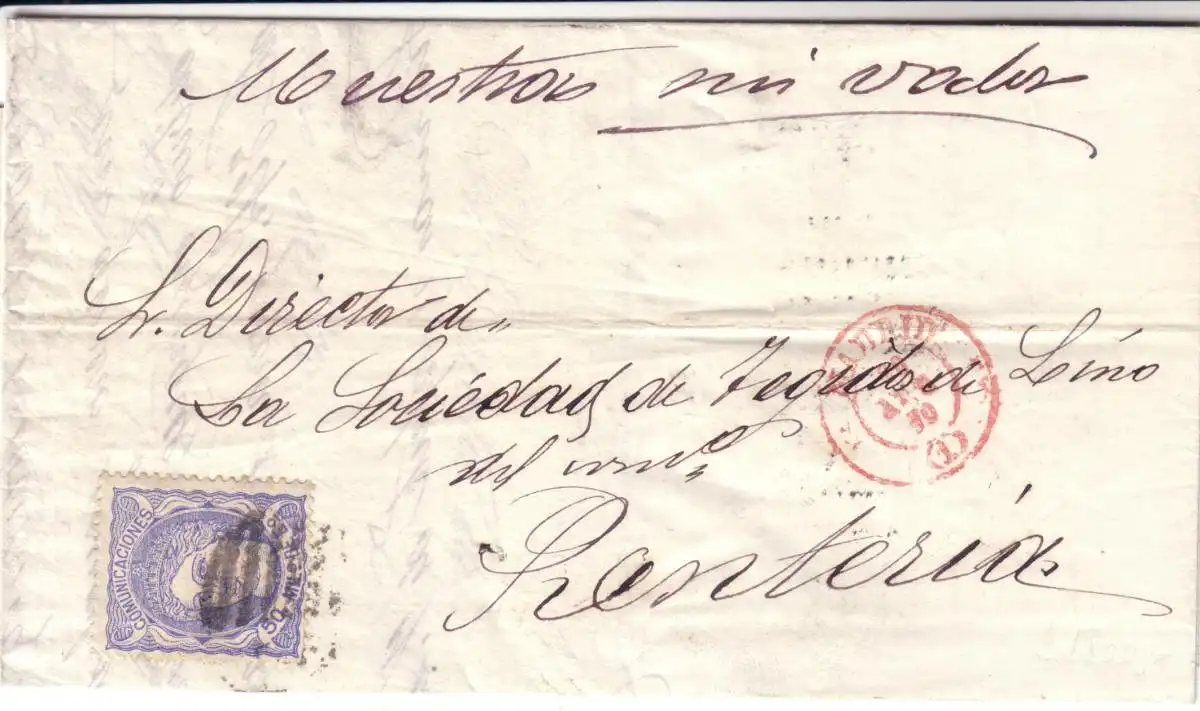 Muestras sin valor
Sr. Director de
La Sociedad de Tegidos de Lino
del
Rentería
MADRID
(1)
COMUNICACIONES
50 MILS.